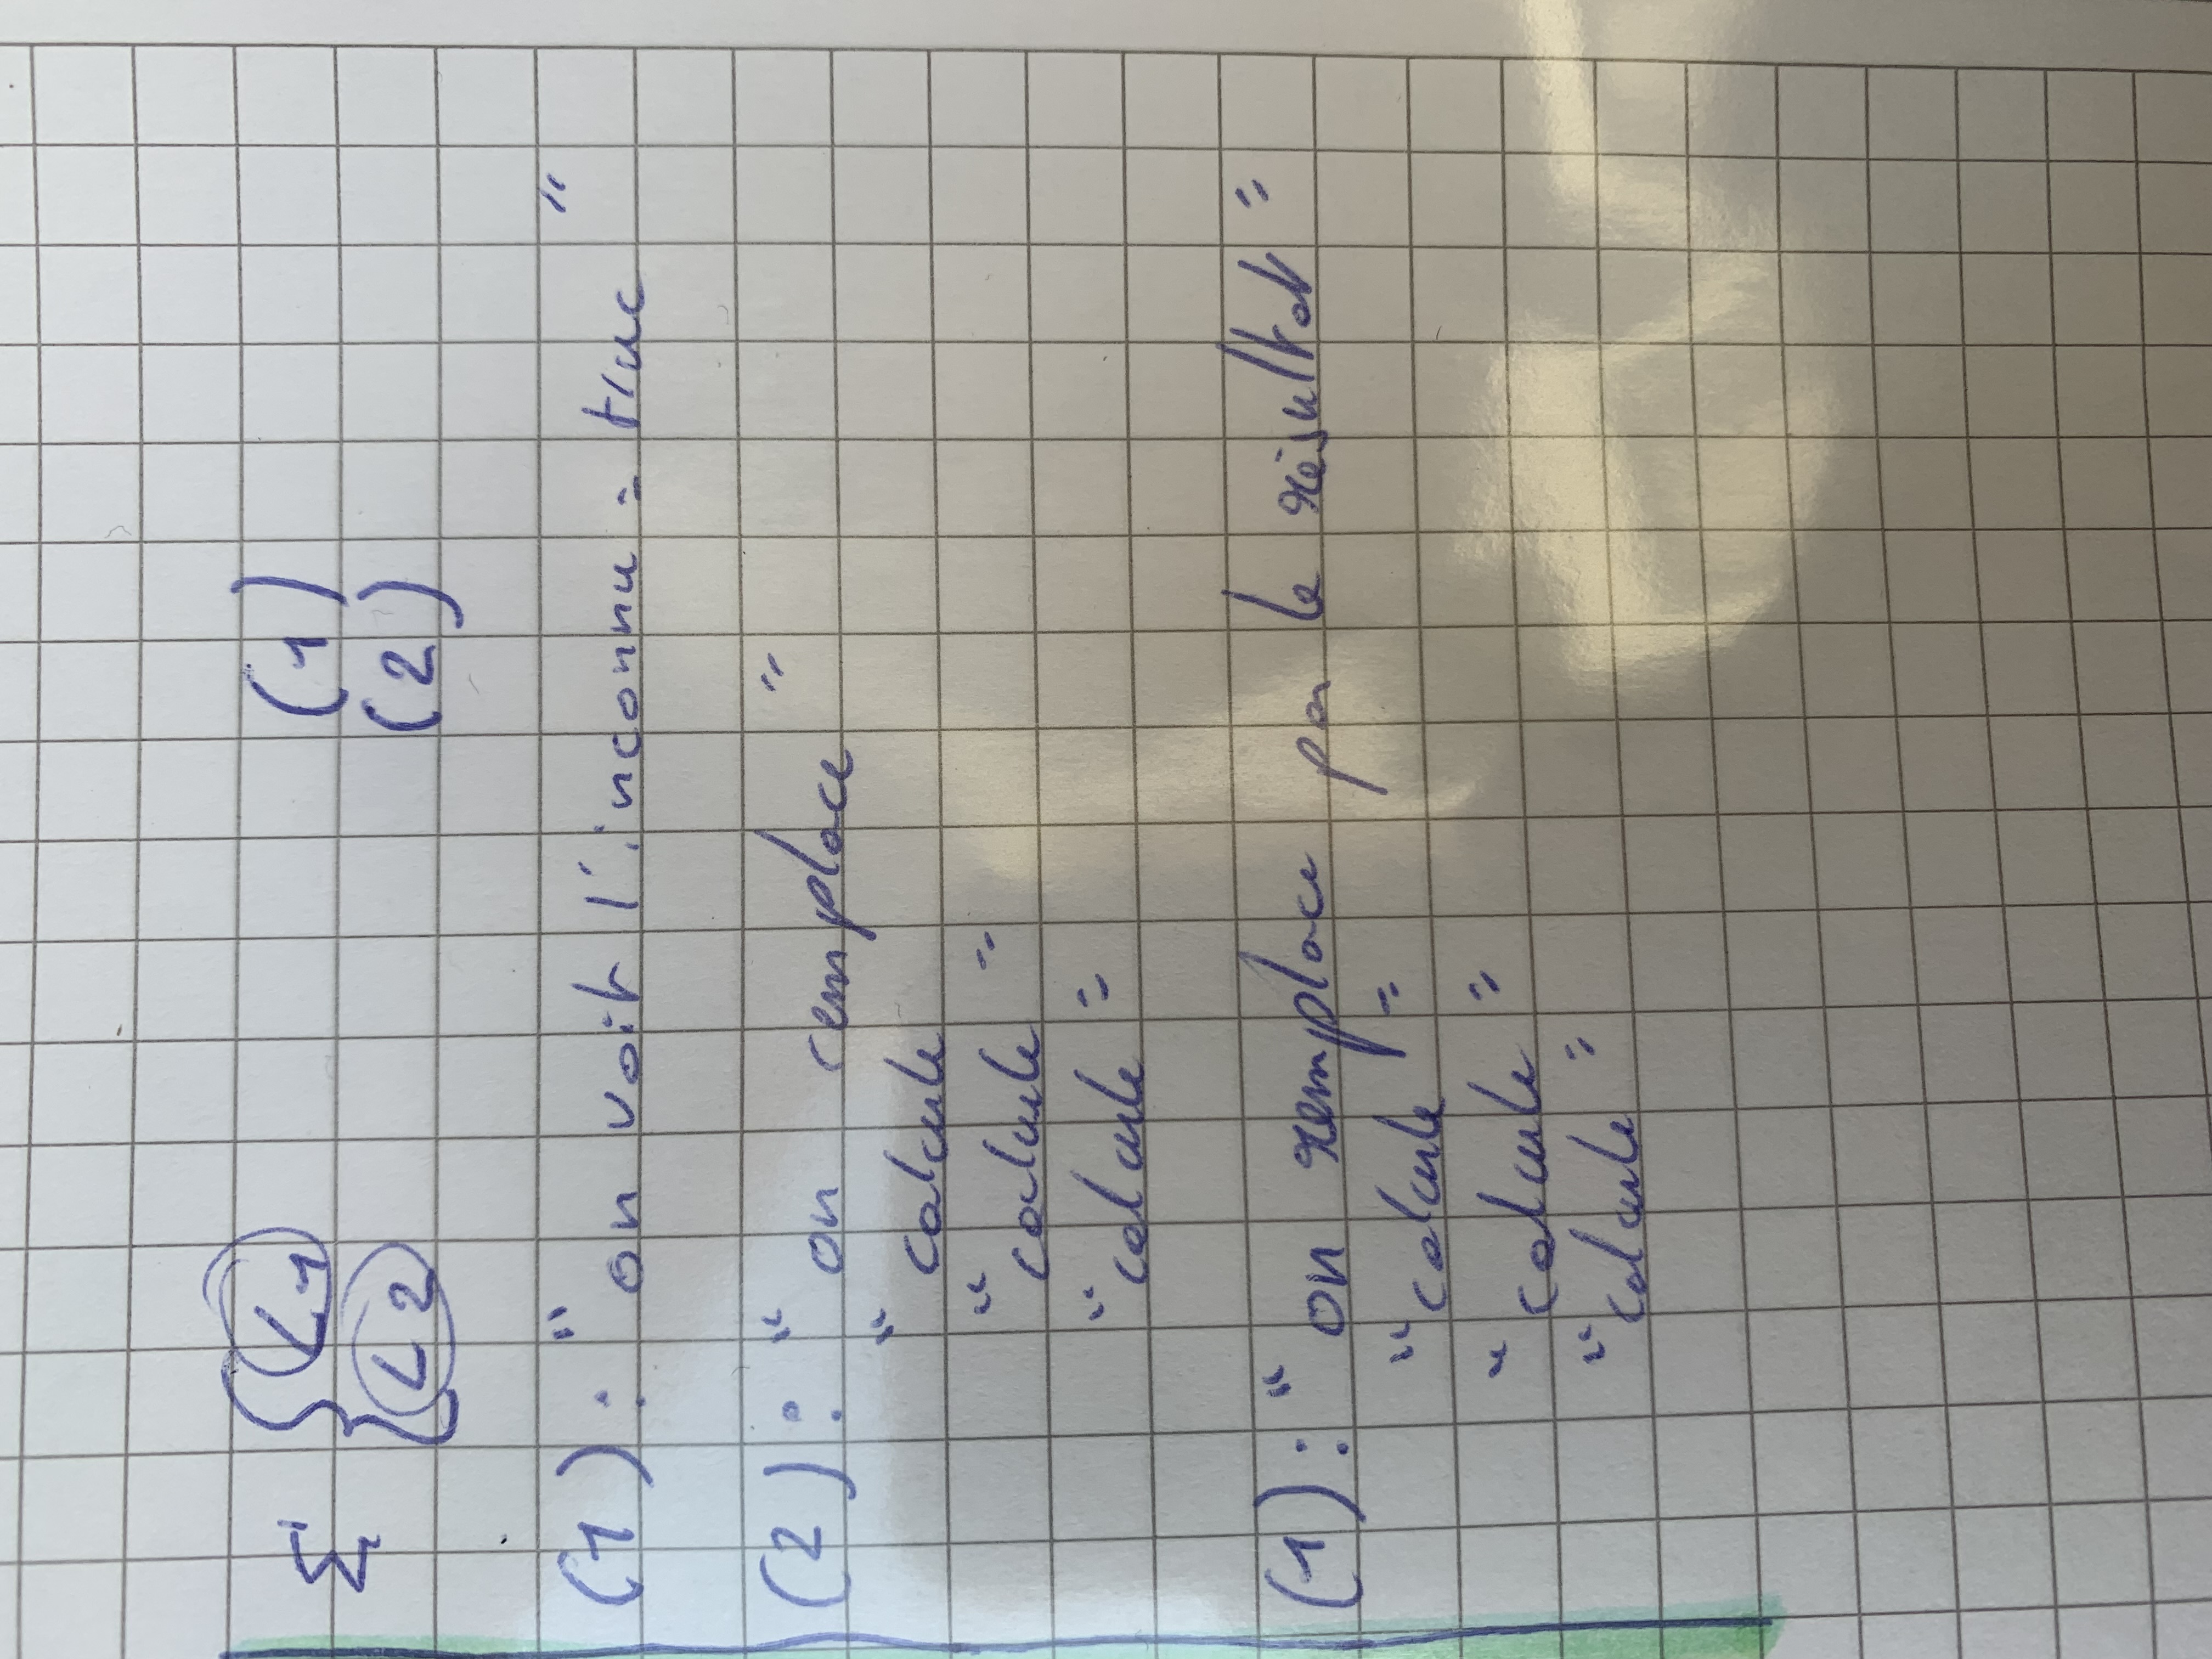 Σ { L1 (1)
{ L2 (2)
(1) : " on voit l'inconnu = truc "
(2) : " on remplace "
" calcule
" calcule "
" calcule "
(1) : " on remplace par le résultat "
" calcule "
" calcule "
" calcule "